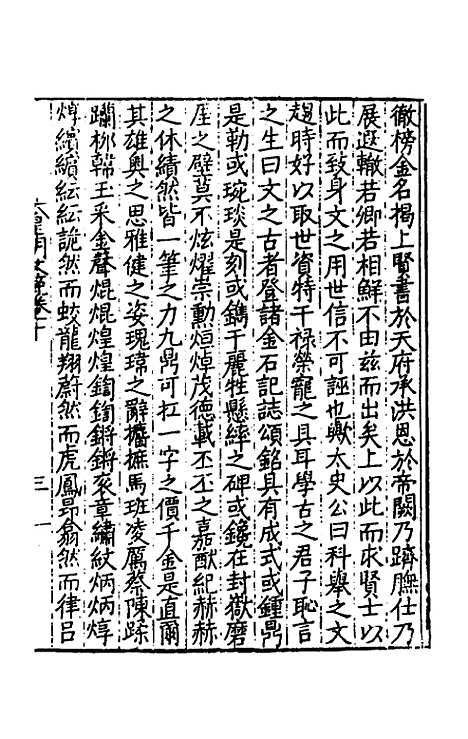 徹榜金名揭上賢書於天府承洪恩於帝闕乃躋膴仕乃
展遐轍若卿若相鮮不由茲而出矣上以此而求賢士以
此而致身文之用世信不可誣也歟太史公曰科舉之文
趨時好以取世資特干祿榮寵之具耳學古之君子恥言
之生曰文之古者登諸金石記誌頌銘具有成式或鍾鼎
是勒或琬琰是刻或鐫于麗牲懸繂之碑或鑱在封嶽磨
厓之壁莫不炫燿崇勳烜焯茂德載丕丕之嘉猷紀赫赫
之休績然皆一筆之力九鼎可扛一字之價千金是直爾
其雄奧之思雅健之姿瑰瑋之辭櫽摭馬班凌厲蔡陳跡
躪柳韓王釆金聲焜焜煌煌鍧鍧鏘鏘袞章繡紋炳炳焞
焞繽繽紜紜詭然而蛟龍翔蔚然而虎鳳昻翕然而律呂
三